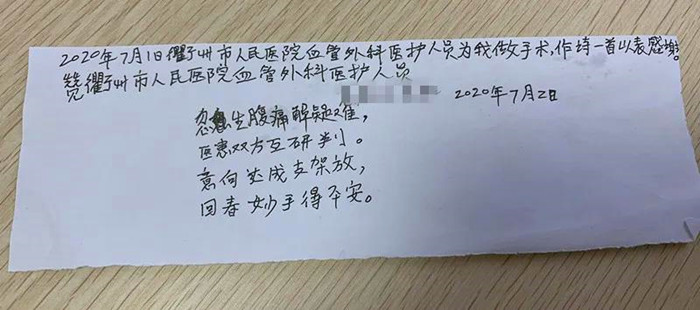 2020年7月1日衢州市人民医院血管外科医护人员为我做手术,作诗一首以表感谢。
赞衢州市人民医院血管外科医护人员
2020年7月2日
忽生腹痛解疑难,
医患双方互研判。
意向达成支架放,
回春妙手得平安。